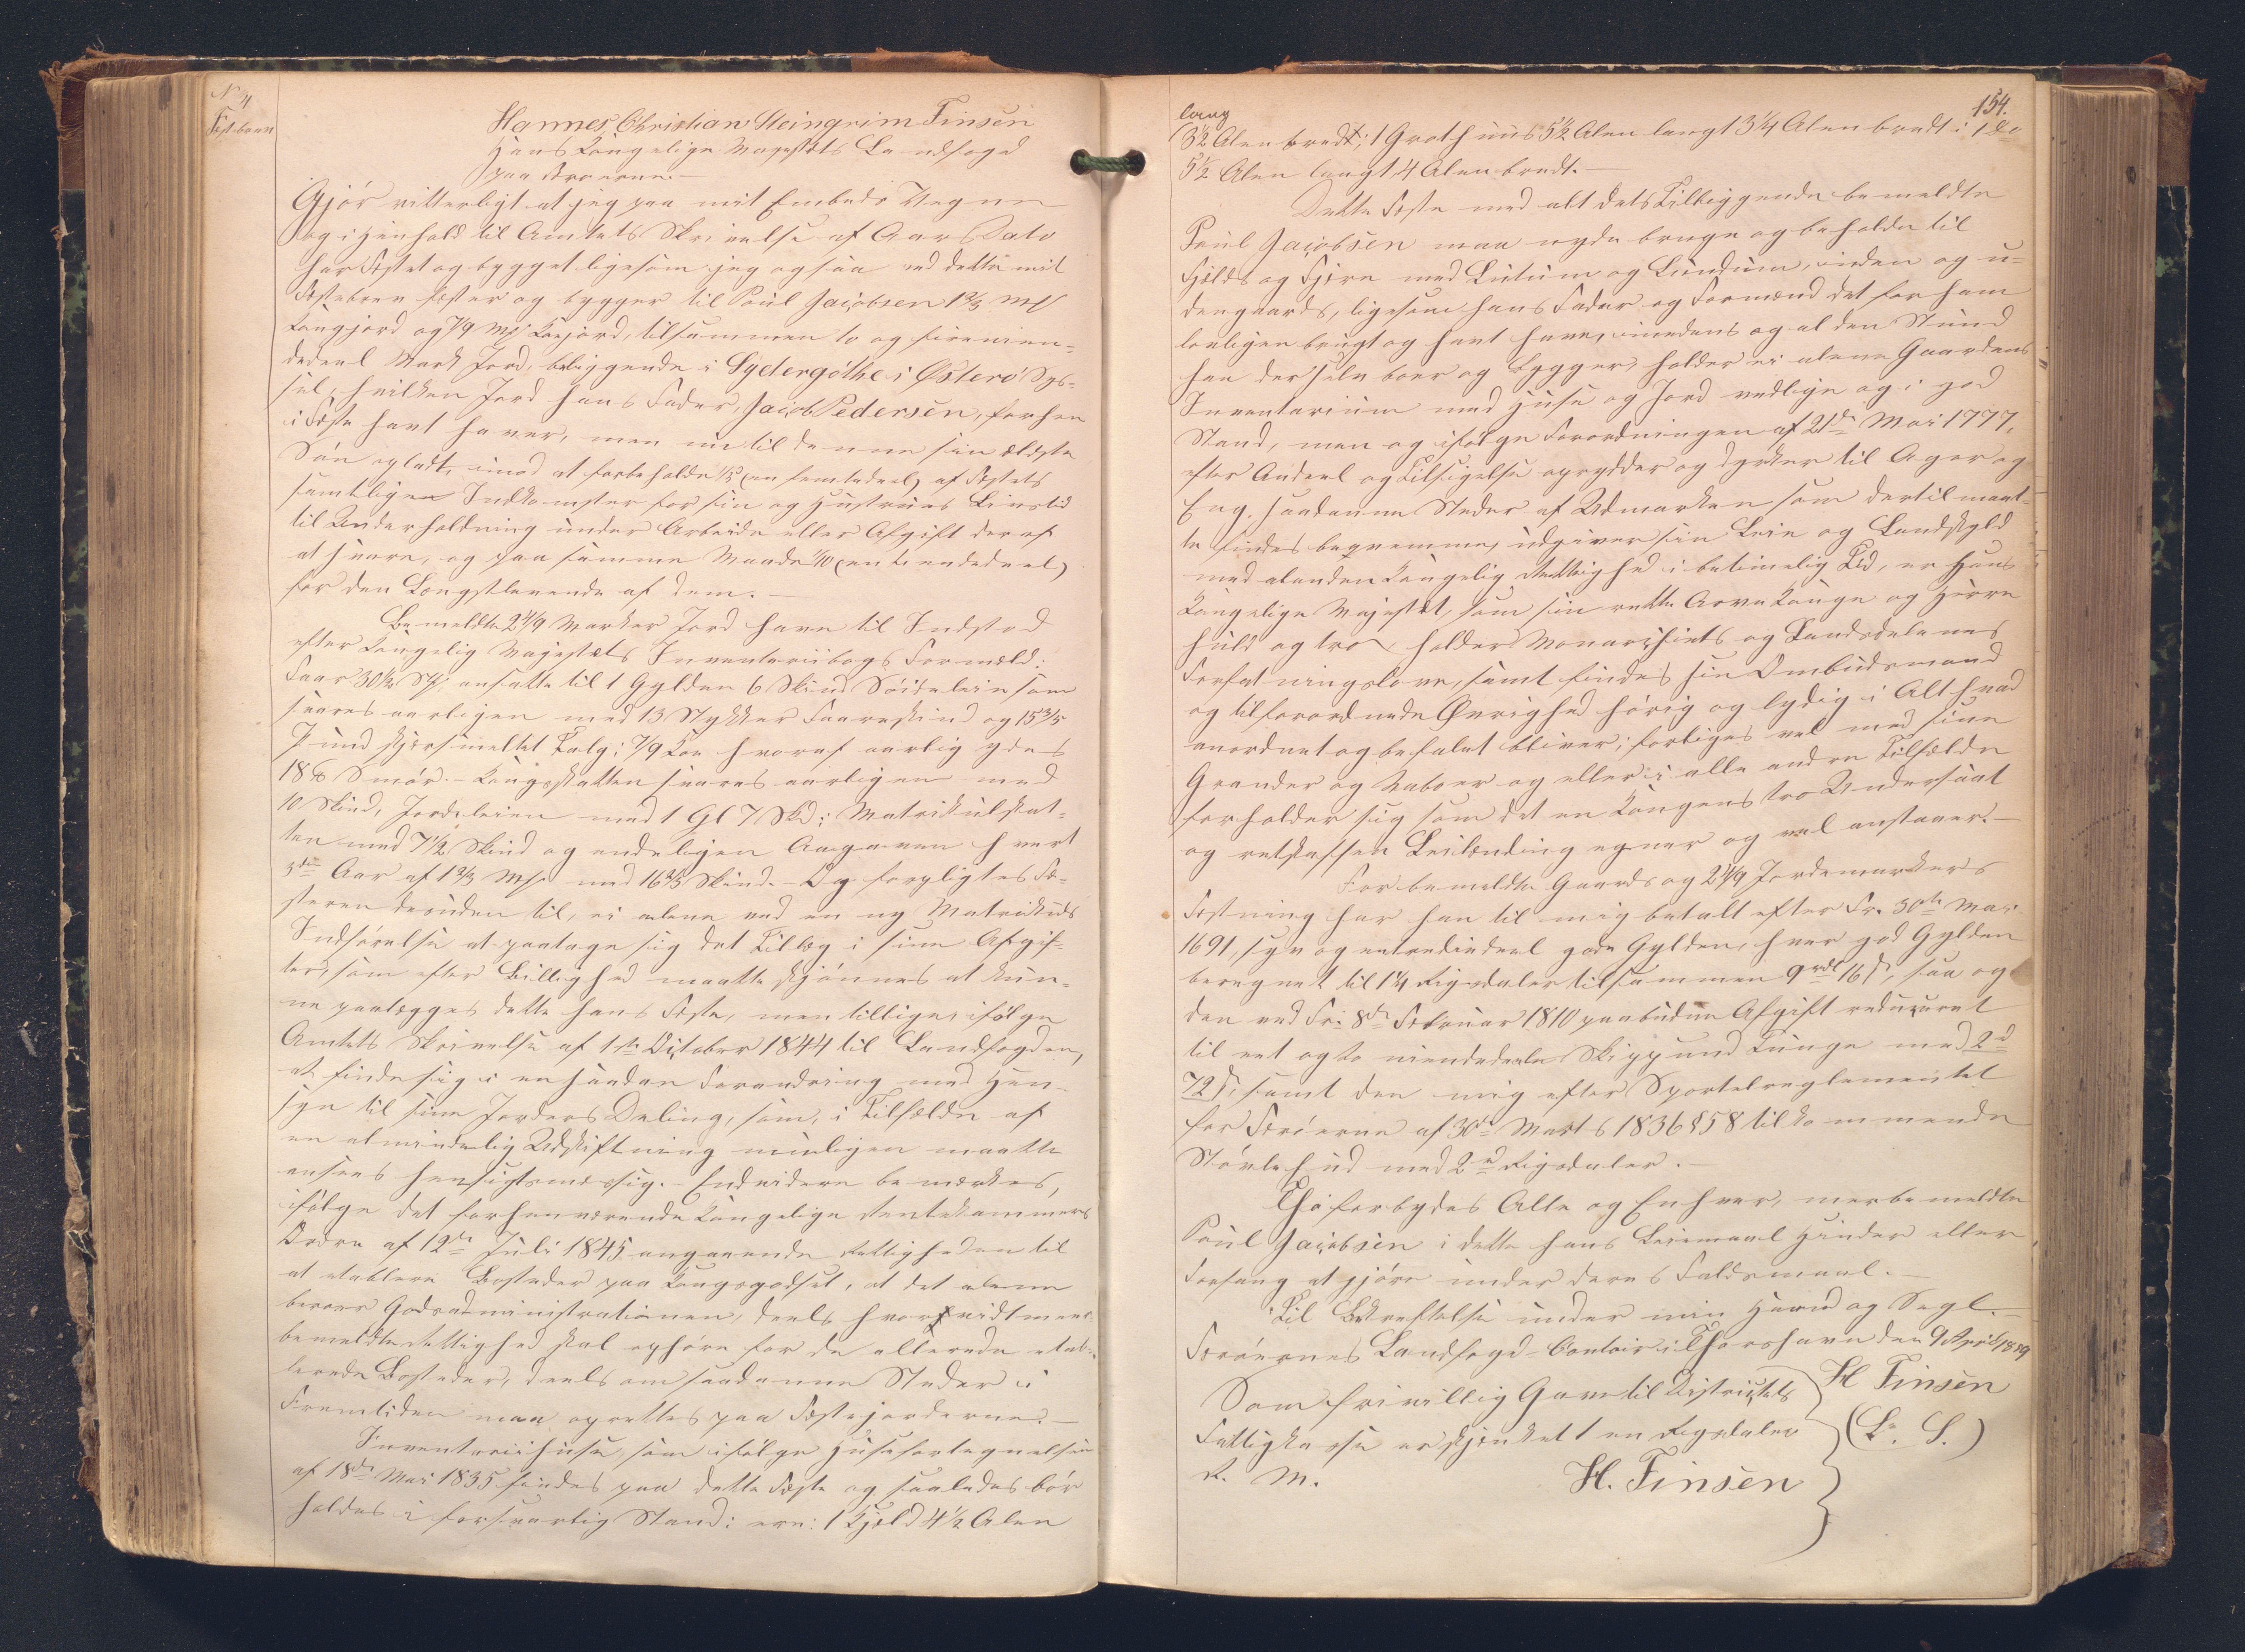 N 31
Festebrev
Hannes Christian Steingrim Finsen
Hans Kongelige Majestæts Landfoged
paa Færøerne.—
Gjør vitterligt at jeg paa mit Embeds Vegne
og i Henhold til Amtets Skrivelse af Gaars Dato
har fæstet og bygget ligesom jeg ogsaa ved dette mit
Festebrev fæster og bygger til Poul Jacobsen 1 2/3 Mk
Kongjord og 7/9 Mk Kojord, tilsammen to og firenien-
dedeel Mark Jord, beliggende i Sydergøthe i Østerø Sys-
sel, hvilken Jord hans Fader, Jacob Pedersen, forhen
i Feste havt haver, men nu til denne sin ældste
Søn opladt, imod at forbeholde 1/5 (en femtedeel) af Festets
samtligen Indkomster for sin og Hustrues Livstid
til Underholdning uden Arbeide eller Afgift deraf
at svare, og paa samme Maade 1/10 (en tiendedeel)
for den Længstlevende af dem.—
Bemeldte 2 4/9 Marker Jord have til Indstød
efter Kongelig Majestæts Inventariibogs Formeld:
Faar 30 1/2 Stk ansatte til 1 Gylden 6 Skind Søideleie som
svares aarligen med 13 Stykker Faareskind og 15 3/5
Pund skjærsmeltet Talg; 7/9 Koe hvoraf aarlig ydes
18 ℔ Smør.– Kongsskatten svares aarligen med
10 Skind, Jordeleien med 1 Gl 7 Skd; Matrikulskat-
ten med 7 1/2 Skind og endeligen Aagaven hvert
3die Aar af 1 2/3 Mk med 16 2/3 Skind.– Og forpligtes Fæ-
steren desuden til, ei alene ved en ny Matrikuls
Indførelse at paatage sig det Tillæg i sine Afgif-
ter, som efter Billighed maatte skjønnes at kun-
ne paalægges dette hans Feste, men tillige, ifølge
Amtets Skrivelse af 1ste October 1844 til Landfogden,
at finde sig i en saadan Forandring med Hen-
syn til sine Jorders Deling, som, i Tilfælde af
en almindelig Udskiftning muligen maatte
ansees hensigtsmæssig.– Endvidere bemærkes,
ifølge det forhenværende Kongelige Rentekammers
Ordre af 12te Juli 1845 angaaende Rettigheden til
at etablere Bosteder paa Kongsgodset, at det alene
beroer Godsadministrationen, deels hvorvidt meer-
bemeldte Rettighed skal ophøre for de allerede etab-
lerede Bosteder, deels om saadanne Steder i
Fremtiden maa oprettes paa Festejorderne.—
Inventariihuse, som ifølge Husefortegnelsen
af 18de Mai 1835 findes paa dette Feste og saaledes bør
holdes i forsvarlig Stand: ere: 1 Hjeld 4 1/2 Alen
154.
lang
3 1/2 Alen bredt; 1 Grothuus 5 1/2 Alen langt 3 1/4 Alen bredt; 1 do
5 1/2 Alen langt, 4 Alen bredt.—
Dette Feste med alt dets Tilliggende bemeldte
Poul Jacobsen maa nyde bruge og beholde til
Fjelds og Fjære med Lutum og Lundum, inden og u-
dengaards, ligesom hans Fader og Formænd det for ham
lovligen brugt og havt have, imedens og al den Stund
han derselv boer og bygger, holder ei alene Gaardens
Inventarium med Huse og Jord vedlige og i god
Stand, men og ifølge Forordningen af 21de Mai 1777,
efter Andeel og Tilsigelse oprydder og dyrker til Ager og
Eng, saadanne Steder af Udmarken som dertil maat-
te findes beqvemme, udgiver sin Leie og Landskyld
med al anden Kongelig Rettighed i betimelig Tid, er Hans
Kongelige Majestæt, som sin rette Arve Konge og Herre
huld og tro, holder Monarchiets og Landsdelenes
Forfatningslove, samt findes sin Ombudsmand
og tilforordnede Øvrighed hørig og lydig i Alt hvad
anordnet og befalet bliver; forliges vel med sine
Grander og Naboer og ellers i alle andre Tilfælde
forholder sig som det en Kongens tro Undersaat
og retskaffen Leilænding egner og vel anstaaer.—
For bemeldte Gaards og 2 4/9 Jordemarkers
Festning har han til mig betalt efter Fr. 30te Mai
1691, syv og entrediedeel gode Gylden, hver god Gylden
beregnet til 1 1/4 Rigsdaler tilsammen 9 rdl 16 s, saa og
den ved Fr. 8de Februar 1810 paabudne Afgift reduceret
til eet og to niendedeele Skippund Tunge med 2 d
72 s, samt den mig efter Sportelreglementet
for Færøerne af 30te Marts 1836 § 58 tilkommende
Støvlehud med 2 d Rigsdaler.—
Thi forbydes Alle og Enhver, merbemeldte
Poul Jacobsen i dette hans Leiemaal Hinder eller
Forfang at gjøre under deres Faldsmaal.—
Til Bekræftelse under min Haand og Segl.—
Færøernes Landfoged-Contoir i Thorshavn den 9 April 1859
Som frivillig Gave til Districtets
Fattigkasse er skjenket 1 en Rigsdaler
R. M.
H. Finsen
H Finsen
(L. S.)